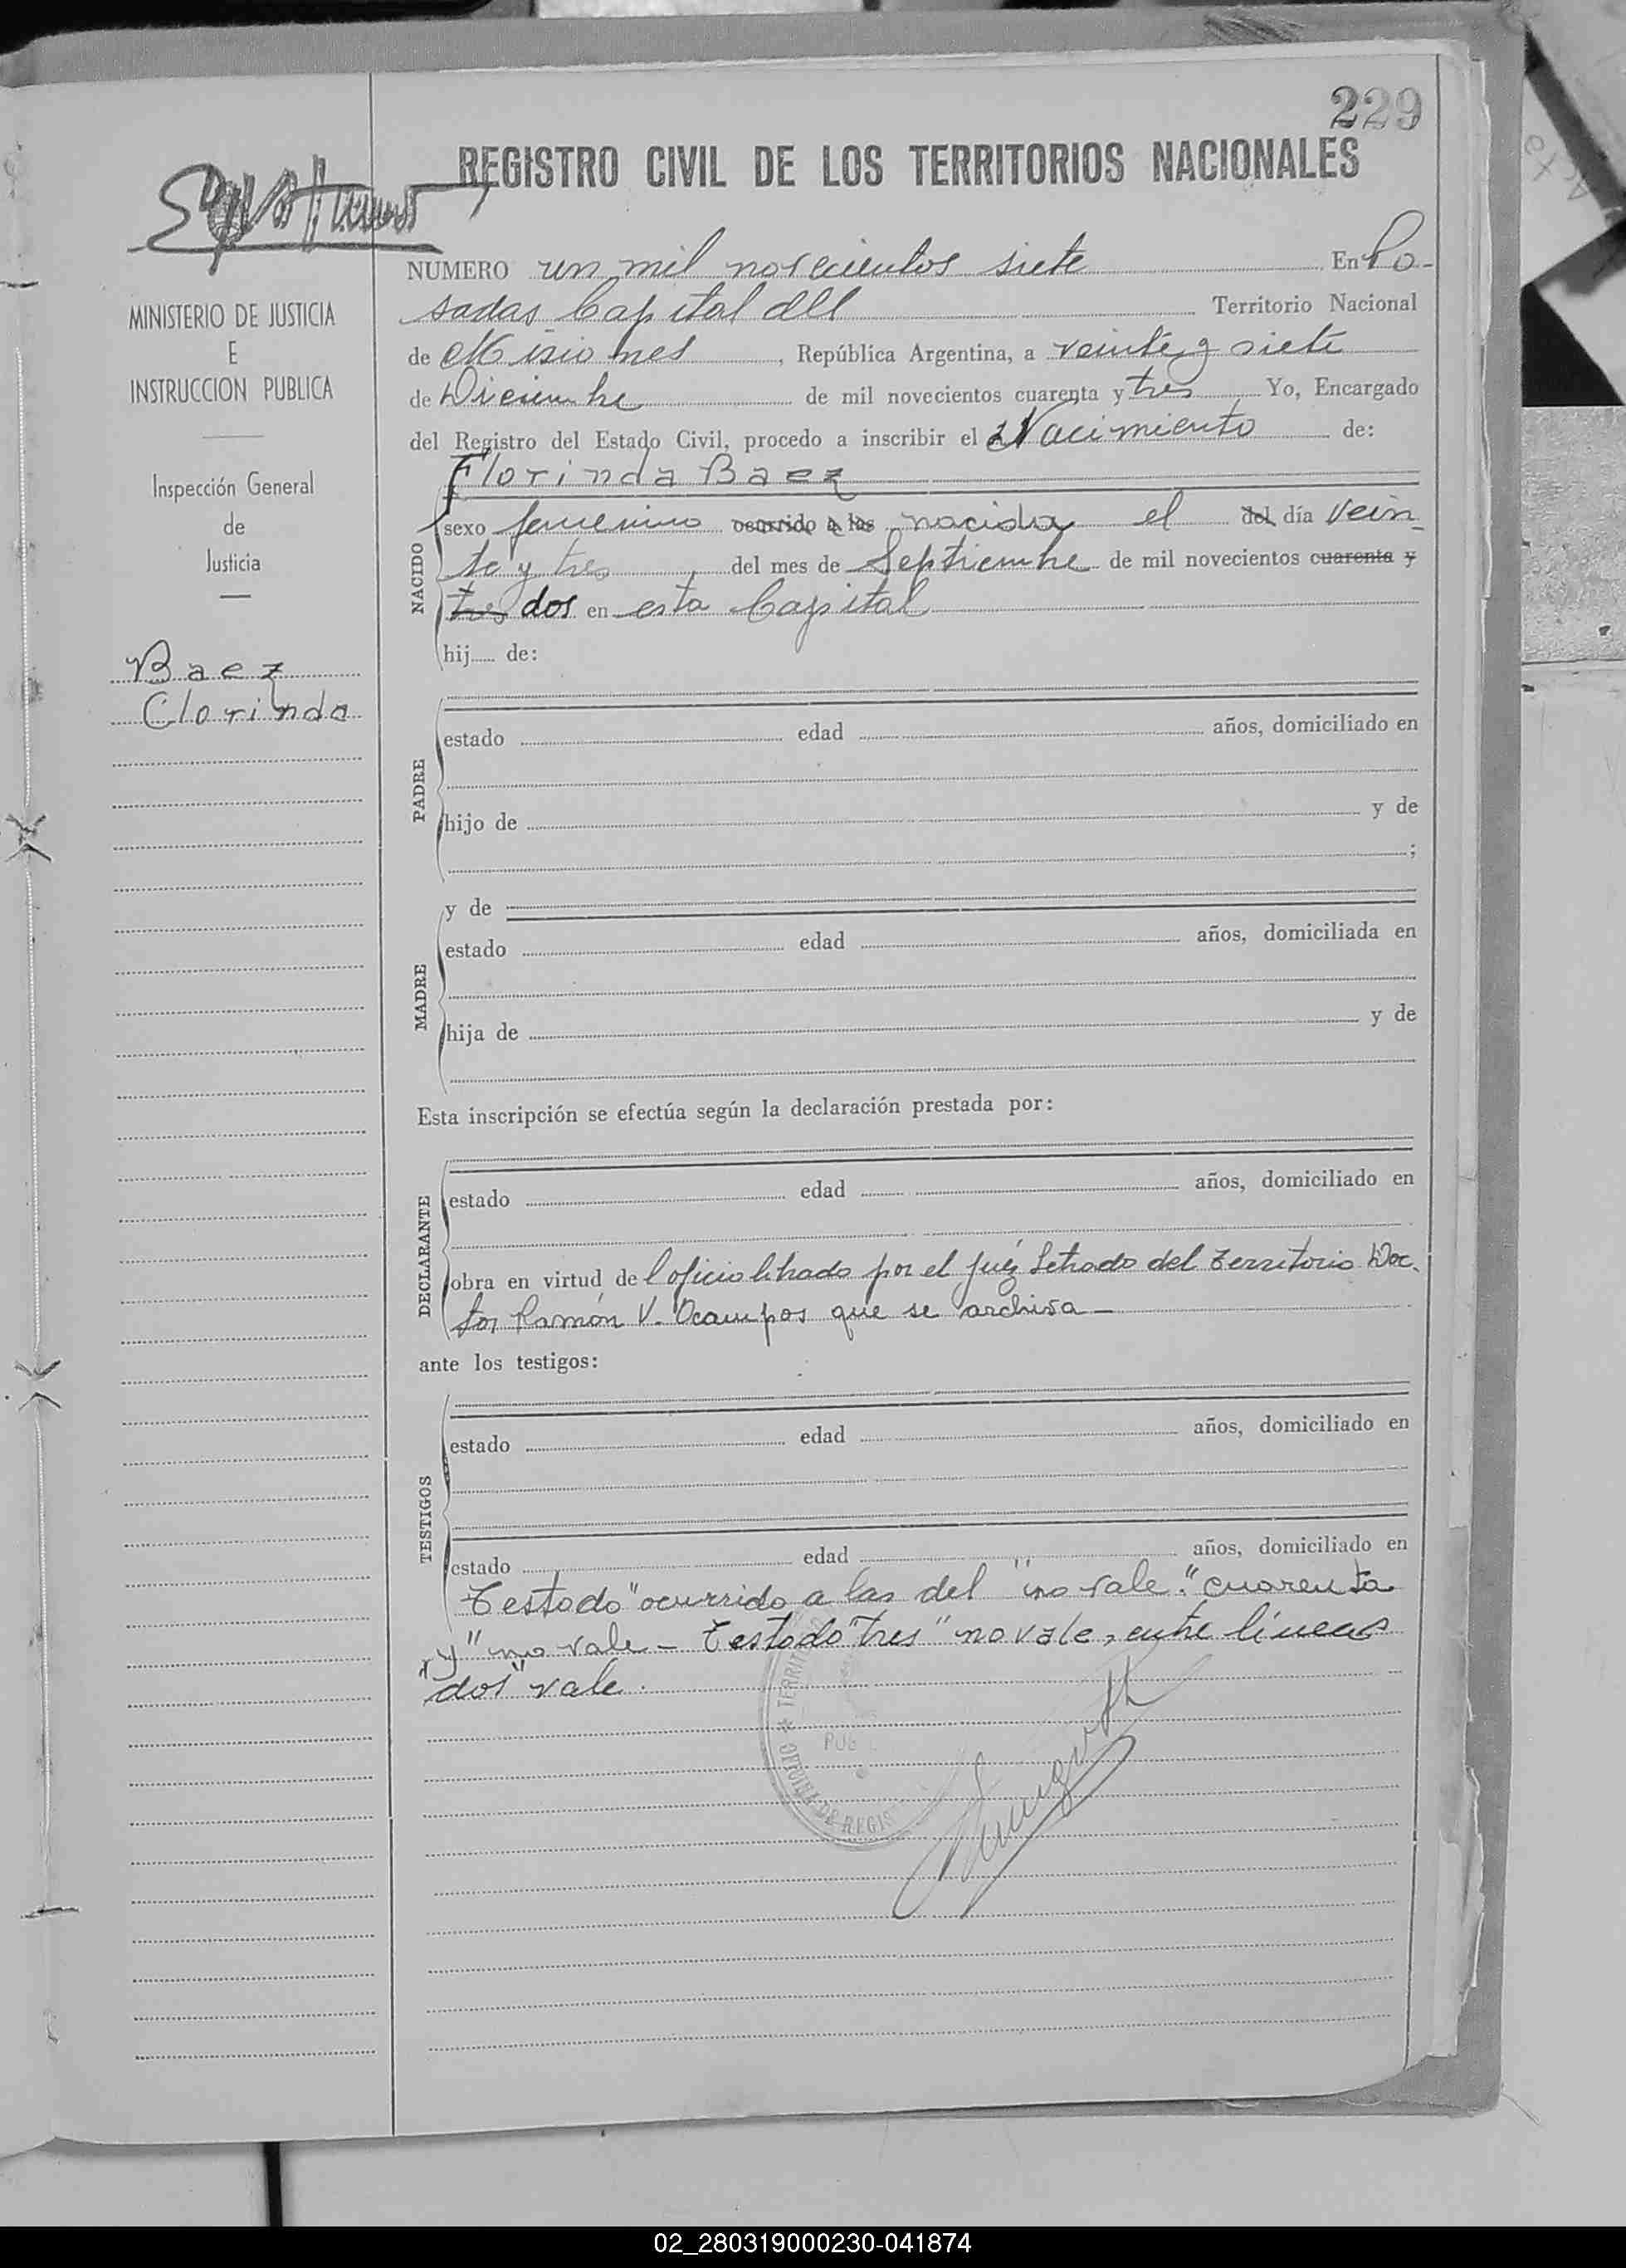 229
REGISTRO CIVIL DE LOS TERRITORIOS NACIONALES
MINISTERIO DE JUSTICIA
E
INSTRUCCION PUBLICA
Inspección General
de
Justicia
Baez
Clorinda
NUMERO un mil novecientos siete En Po-
sadas Capital del Territorio Nacional
de Misiones, República Argentina, a veinte y siete
de Diciembre de mil novecientos cuarenta y tres Yo, Encargado
del Registro del Estado Civil, procedo a inscribir el Nacimiento de:
Florinda Baez
NACIDO
sexo femenino ocurrido a las nacida el del día vein-
te y tres del mes de Septiembre de mil novecientos cuarenta y
tres dos en esta Capital
hij de:
PADRE
estado edad años, domiciliado en
hijo de y de
;
MADRE
y de
estado edad años, domiciliada en
hija de y de
Esta inscripción se efectúa según la declaración prestada por:
DECLARANTE
estado edad años, domiciliado en
obra en virtud de l oficio librado por el Juez Letrado del Territorio Doc-
tor Ramón V. Ocampos que se archiva—
ante los testigos:
TESTIGOS
estado edad años, domiciliado en
estado edad años, domiciliado en
Testado "ocurrido a las del "no vale." cuarenta
y" no vale - Testado "tres" no vale, entre líneas
"dos" vale.
TERRITO
OFICINA DE REGIS
PUB
02_280319000230-041874